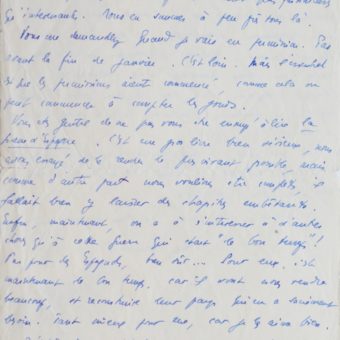 qu'internants. Nous en sommes à peu près tous là.
Vous me demandez quand je vais en permission. Pas
avant la fin de janvier. C'est loin. Mais l'essentiel
est que les permissions aient commencé, comme cela on
peut commencer à compter les jours.
Vous êtes gentil de ne pas vous être ennuyé à lire la
d'Espagne. C'est un gros livre bien sérieux, nous
avons essayé de le rendre le plus vivant possible, mais
comme d'autre part nous voulions être complets, il
fallait bien y laisser des chapitres embêtants.
Enfin, maintenant, on a à s'intéresser à d'autres
choses qu'à cette guerre qui était "le bon temps"!
Pas pour les Espagnols, bien sûr... Pour eux, c'est
maintenant le bon temps, car ils vont nous vendre
beaucoup, et reconstruire leur pays qui en a
besoin. Tant mieux pour eux, car je les aime bien.